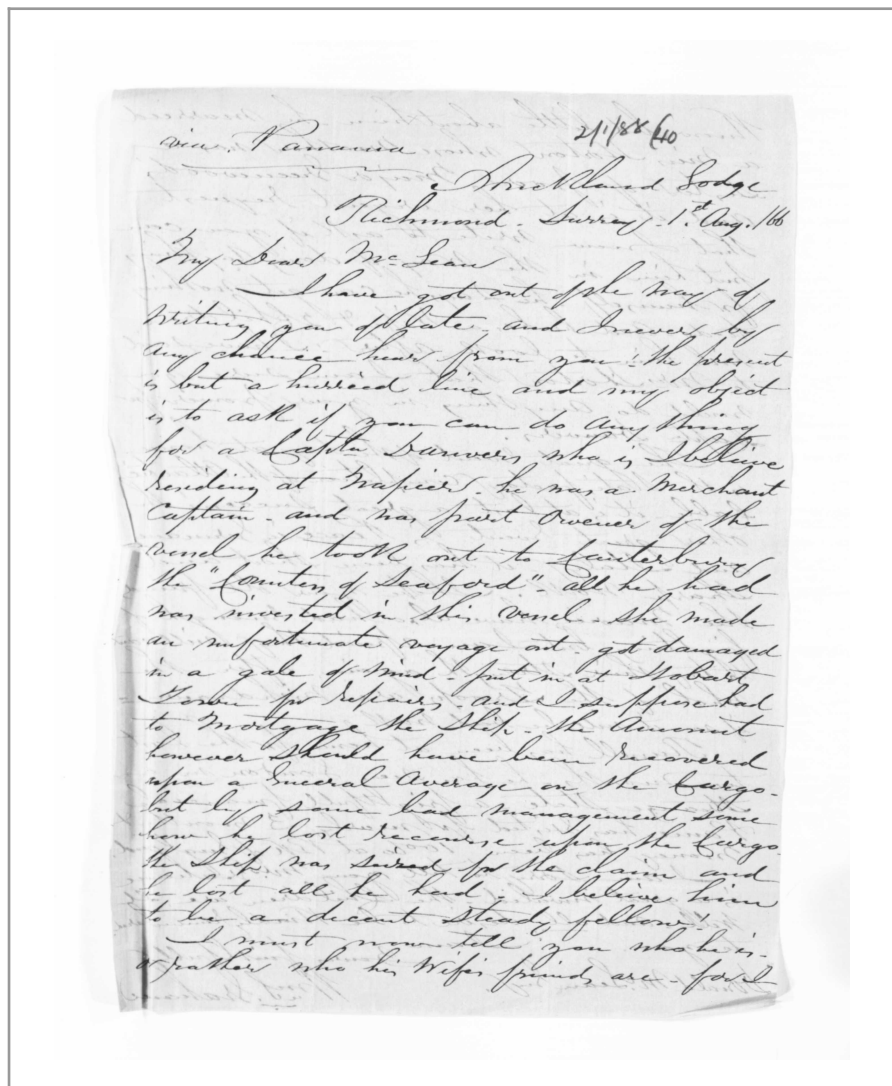 via. Panama
2/1/88/40
Strickland Lodge
Richmond. Surrey. 1st. Aug. /66
My Dear McLean
I have got out of the way of
writing you of late, and I never by
any chance hear from you! the present
is but a hurried line and my object
is to ask if you can do any thing
for a Captn Danvers who is I believe
residing at Napier. he was a Merchant
Captain. and was part Owner of the
vessel he took out to Canterbury
the "Countess of Seaford". all he had
was invested in this vessel. she made
an unfortunate voyage out. got damaged
in a gale of wind. put in at Hobart
Town for repairs. and I suppose had
to Mortgage the Ship. the Amount
however should have been recovered
upon a General Average on the Cargo.
but by some bad management some
how he lost recourse upon the Cargo.
the Ship was seized for the claim and
he lost all he had. I believe him
to be a decent steady fellow!
I must now tell you who he is.
or rather who his Wife's friends are. for I